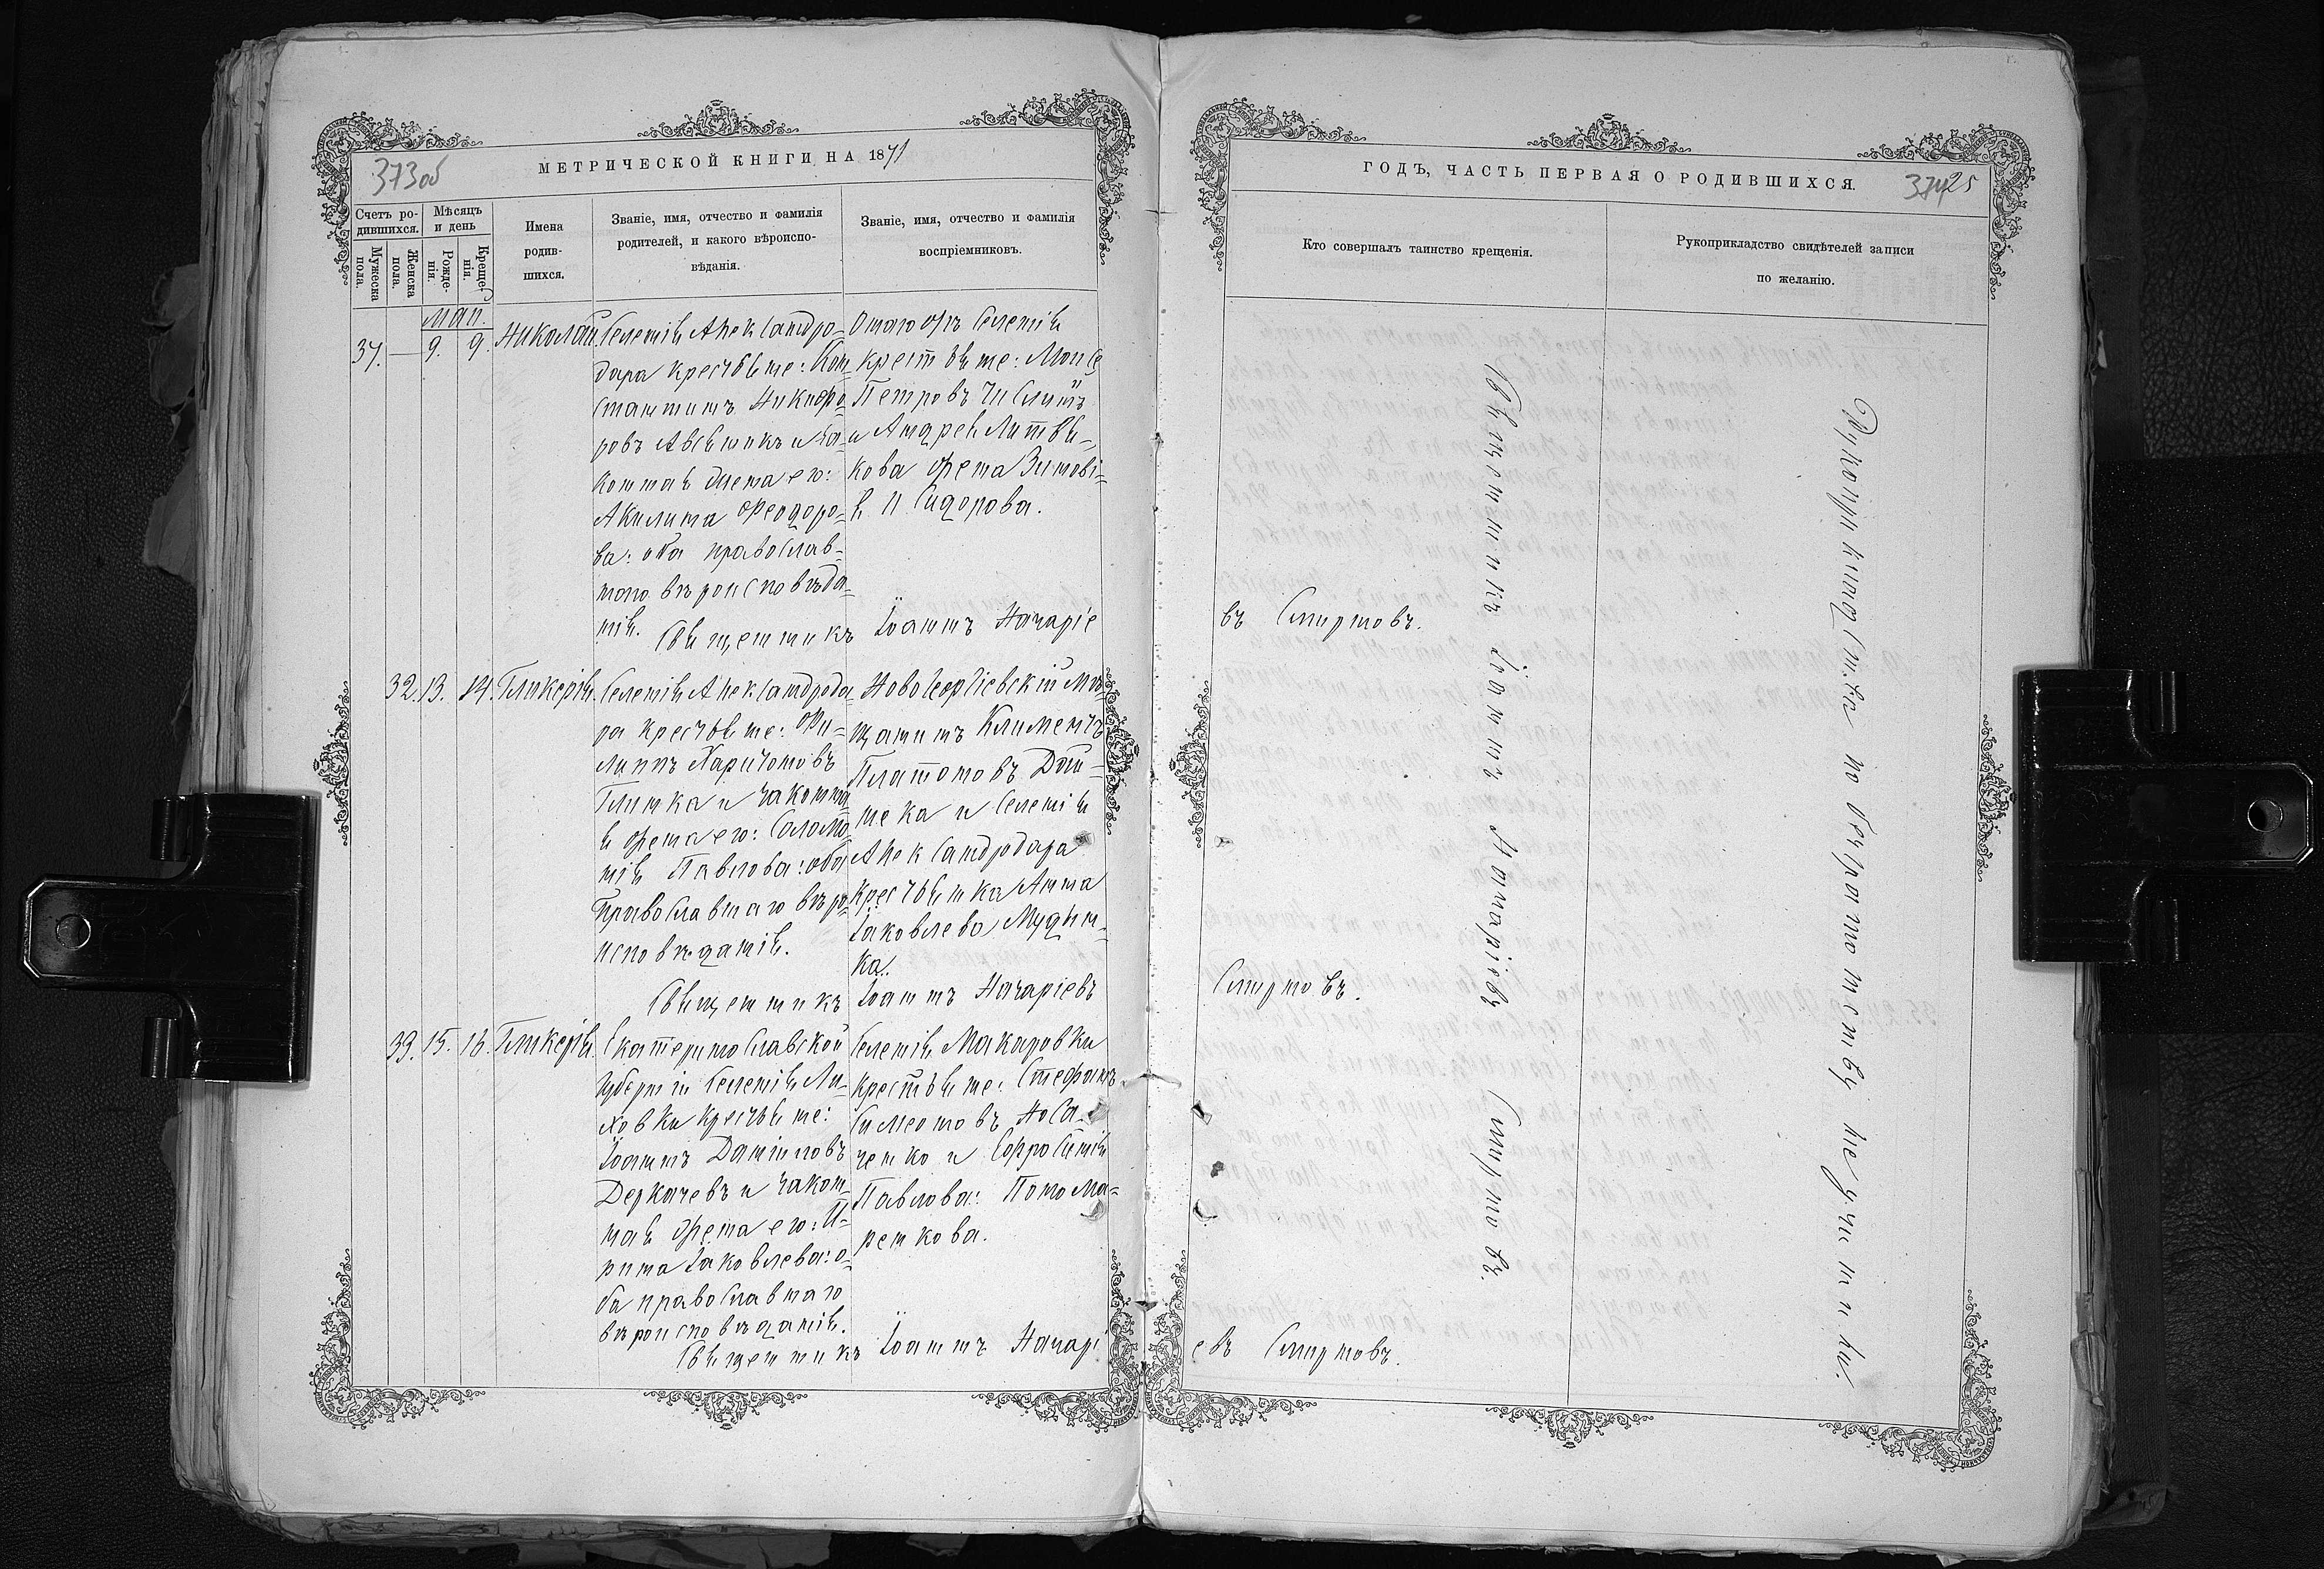 373об
МЕТРИЧЕСКОЙ КНИГИ НА 1871
Счетъ ро-
дившихся.
Мѣсяцъ
и день
Мужеска
пола.
Женска
пола.
Рожде-
нія.
Креще-
нія.
Имена
родив-
шихся.
Званіе, имя, отчество и фамилія
родителей, и какого вѣроиспо-
вѣданія.
Званіе, имя, отчество и фамилія
воспріемниковъ.
маи.
37. — 9. 9. Николай
Селенія Александро-
дара крестьяне: Кон-
стантинъ Никифо-
ровъ и за-
конная жена его:
Акилина Феодоро-
ва: оба православ-
наго вѣроисповѣда-
нія.
Онагожъ селенія
крестьяне: Моисей
Петровъ
и Андрея Литвя-
кова жена Зинові-
я Сидорова.
Священникъ Іоаннъ Назаріе
32. 13. 14. Гликерія.
Селенія Александрода-
ра крестьяне: Фи-
липпъ Харитоновъ
Глинка и законна-
я жена его: Соломо-
нія Павлова: оба
православнаго вѣро-
исповѣданія.
Новогеоргіевскій мѣ-
щанинъ Климентъ
Платоновъ
и селенія
Александродара
крестьянка Анна
Іаковлева Мудрин-
ка.
Священникъ Іоаннъ Назаріевъ
33. 15. 16. Гликерія.
Екатеринославской
губерніи селенія Ли-
ховки крестьяне:
Іоаннъ Даніиловъ
Деркачевъ и закон-
ная жена его: И-
рина Іаковлева: о-
ба православнаго
вѣроисповѣданія.
Селенія Макаровки
крестьяне: Стефанъ
СимеоновъНоса-
ченко и Евфросинія
Павлова: Поном​а-
ренкова.
Священникъ Іоаннъ Назарі
ГОДЪ, ЧАСТЬ ПЕРВАЯ О РОДИВШИХСЯ.
374
25
Кто совершалъ таинство крещенія.
Рукоприкладство свидѣтелей записи
по желанію.
въ Смирновъ.
Смирновъ.
евъ Смирновъ.
Священникъ Іоаннъ Назаріевъ Смирновъ.
Рукоприкладства по безграмотству не учинили.